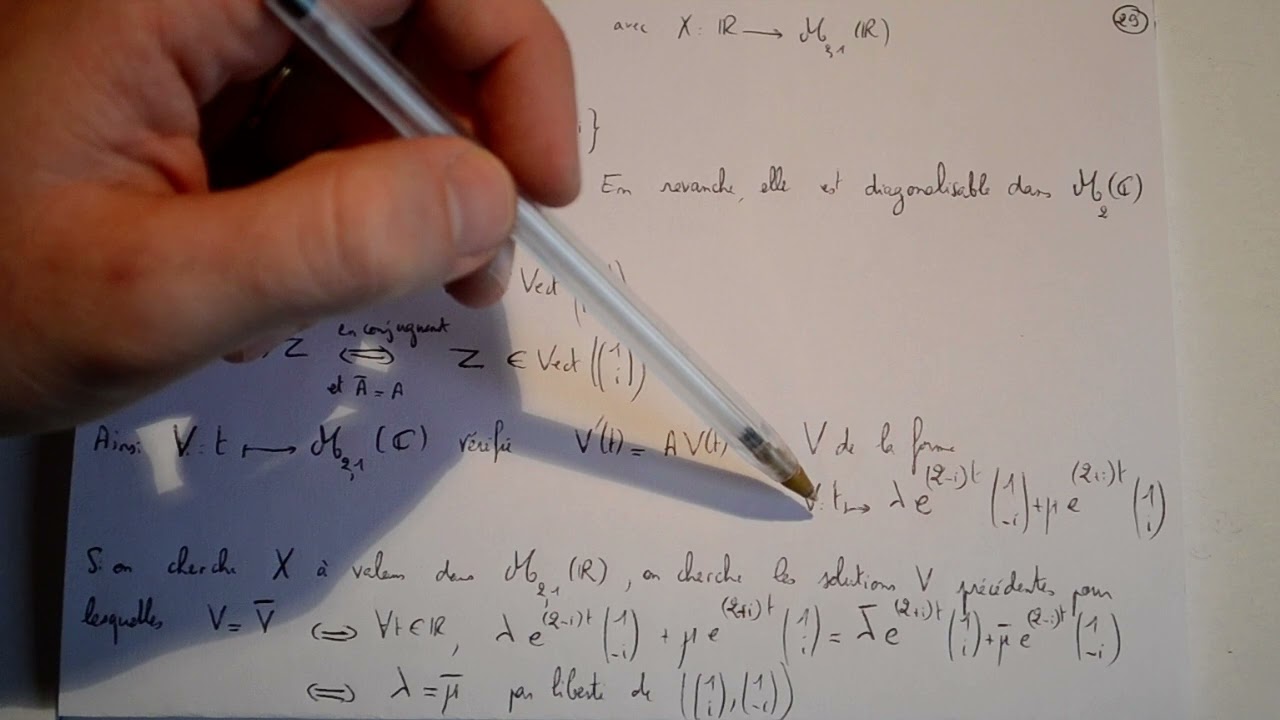 avec X : ℝ ⟶ ℳ₂,₁ (ℝ)
29
i}
En revanche, elle est diagonalisable dans ℳ₂(ℂ)
Vect
Z en conjuguant ⟺ et A̅ = A Z ∈ Vect ((1 i))
Ainsi V : t ⟼ ℳ₂,₁ (ℂ) vérifie V'(t) = A V(t) V de la forme
V : t ↦ λ e^(2-i)t (1 -i) + μ e^(2+i)t (1 i)
Si on cherche X à valeurs dans ℳ₂,₁ (ℝ), on cherche les solutions V précédentes pour
lesquelles V = V̅ ⟺ ∀t∈ℝ, λ e^(2-i)t (1 -i) + μ e^(2+i)t (1 i) = λ̅ e^(2+i)t (1 i) + μ̅ e^(2-i)t (1 -i)
⟺ λ = μ̅ par liberté de ((1 i), (1 -i))